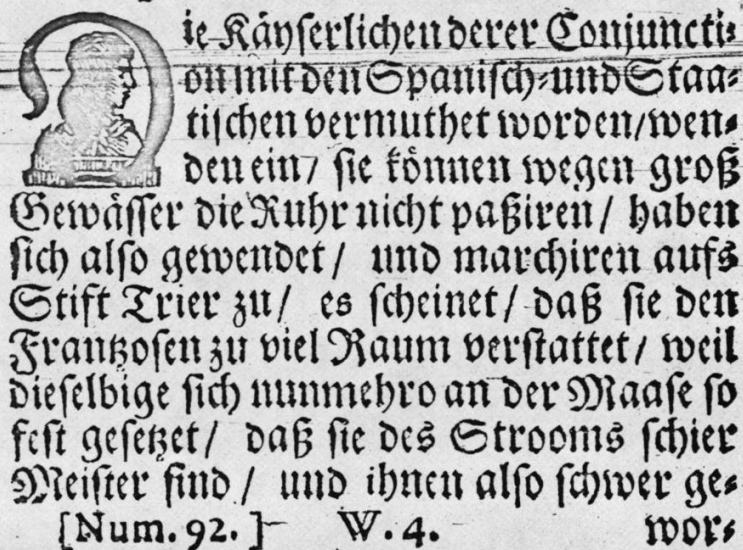 Die Käyserlichen derer Conjuncti-
on mit den Spanisch-und Staa-
tischen vermuthet worden/wen-
den ein/ sie können wegen groß
Gewässer die Ruhr nicht paßiren/ haben
sich also gewendet/ und marchiren aufs
Stift Trier zu/ es scheinet/ daß sie den
Frantzosen zu viel Raum verstattet/ weil
dieselbige sich nunmehro an der Maase so
fest gesetzet/ daß sie des Strooms schier
Meister sind/ und ihnen also schwer ge-
[Num. 92.] W. 4. wor-